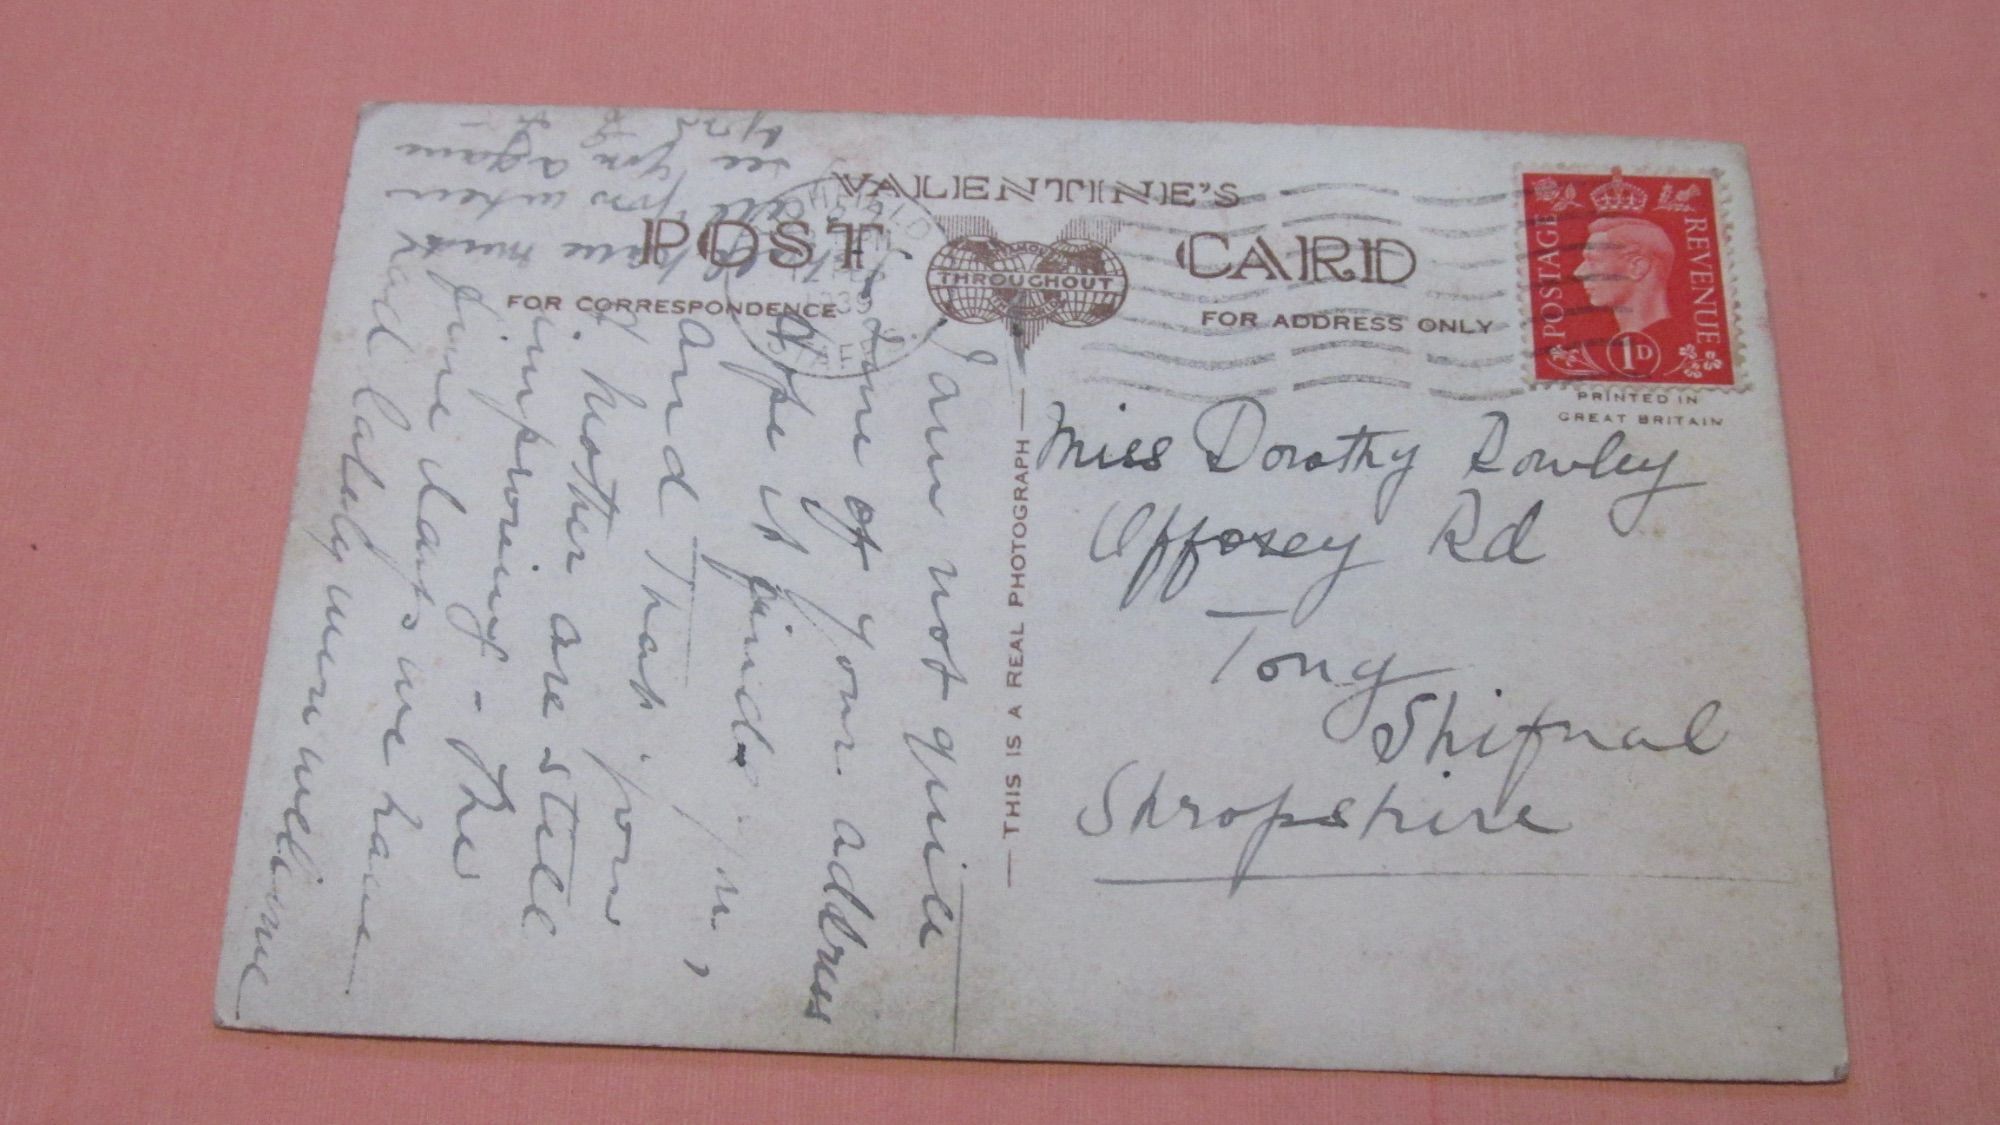 VALENTINE'S
POST CARD
FOR CORRESPONDENCE
THROUGHOUT
FOR ADDRESS ONLY
POSTAGE
REVENUE
1D
PRINTED IN
GREAT BRITAIN
39
STAFFS
THIS IS A REAL PHOTOGRAPH
Miss Dorothy Rowley
Offoxey Rd
Tong
Shifnal
Shropshire
I am not quite
sure of your address
Hope it finds yr,
and That your
Mother are still
improving - The
fine days we have
had lately were welcome
must
when
see you again